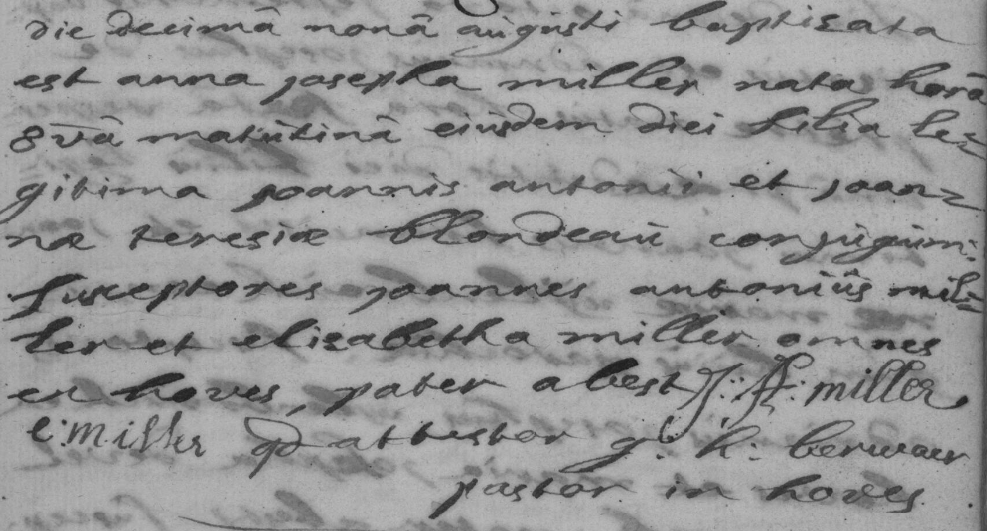 die decimâ nonâ augusti baptizata
est anna josepha miller nata horâ
8vâ matutinâ eiusdem diei filia le=
gitima joannis antonii et joan=
næ teresiæ blondeau conjugum:
susceptores joannes antonius mil=
ler et elisabetha miller omnes
ex hoves, pater abest J: A: miller
e: miller qd attestor g: h: berwaer
pastor in hoves